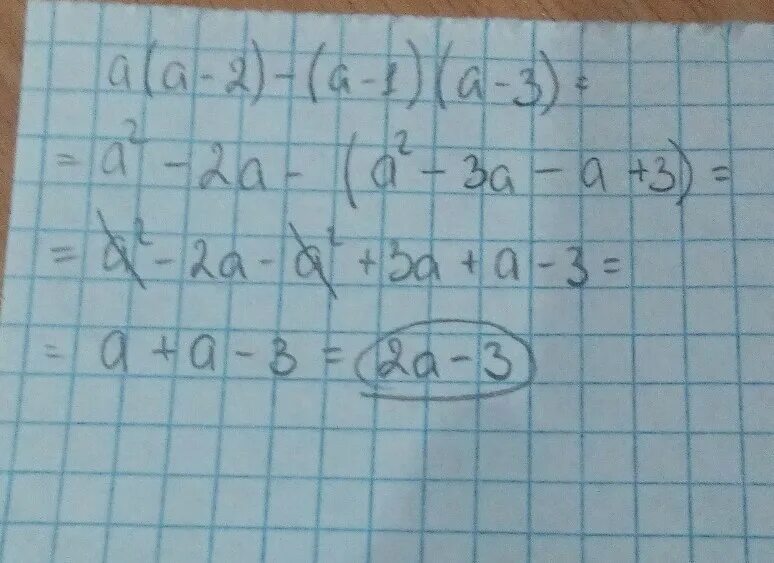 a(a-2)-(a-1)(a-3)=
= a² - 2a - (a² - 3a - a + 3) =
= a² - 2a - a² + 3a + a - 3 =
= a + a - 3 = 2a - 3